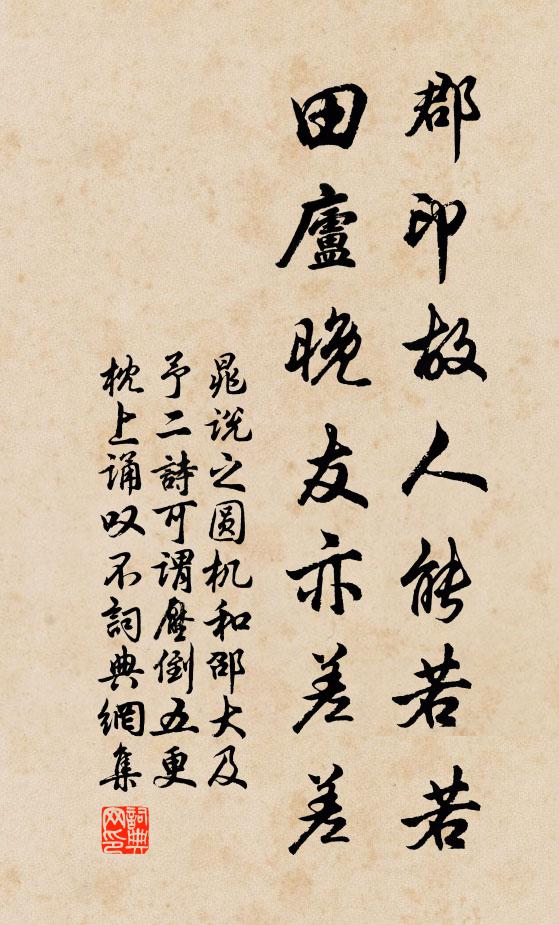 郡印故人能若若
田廬晚友亦差差
晁说之圆机和邵大及
予二詩可谓壓倒五更
枕上诵叹不詞典網集
詞典网印